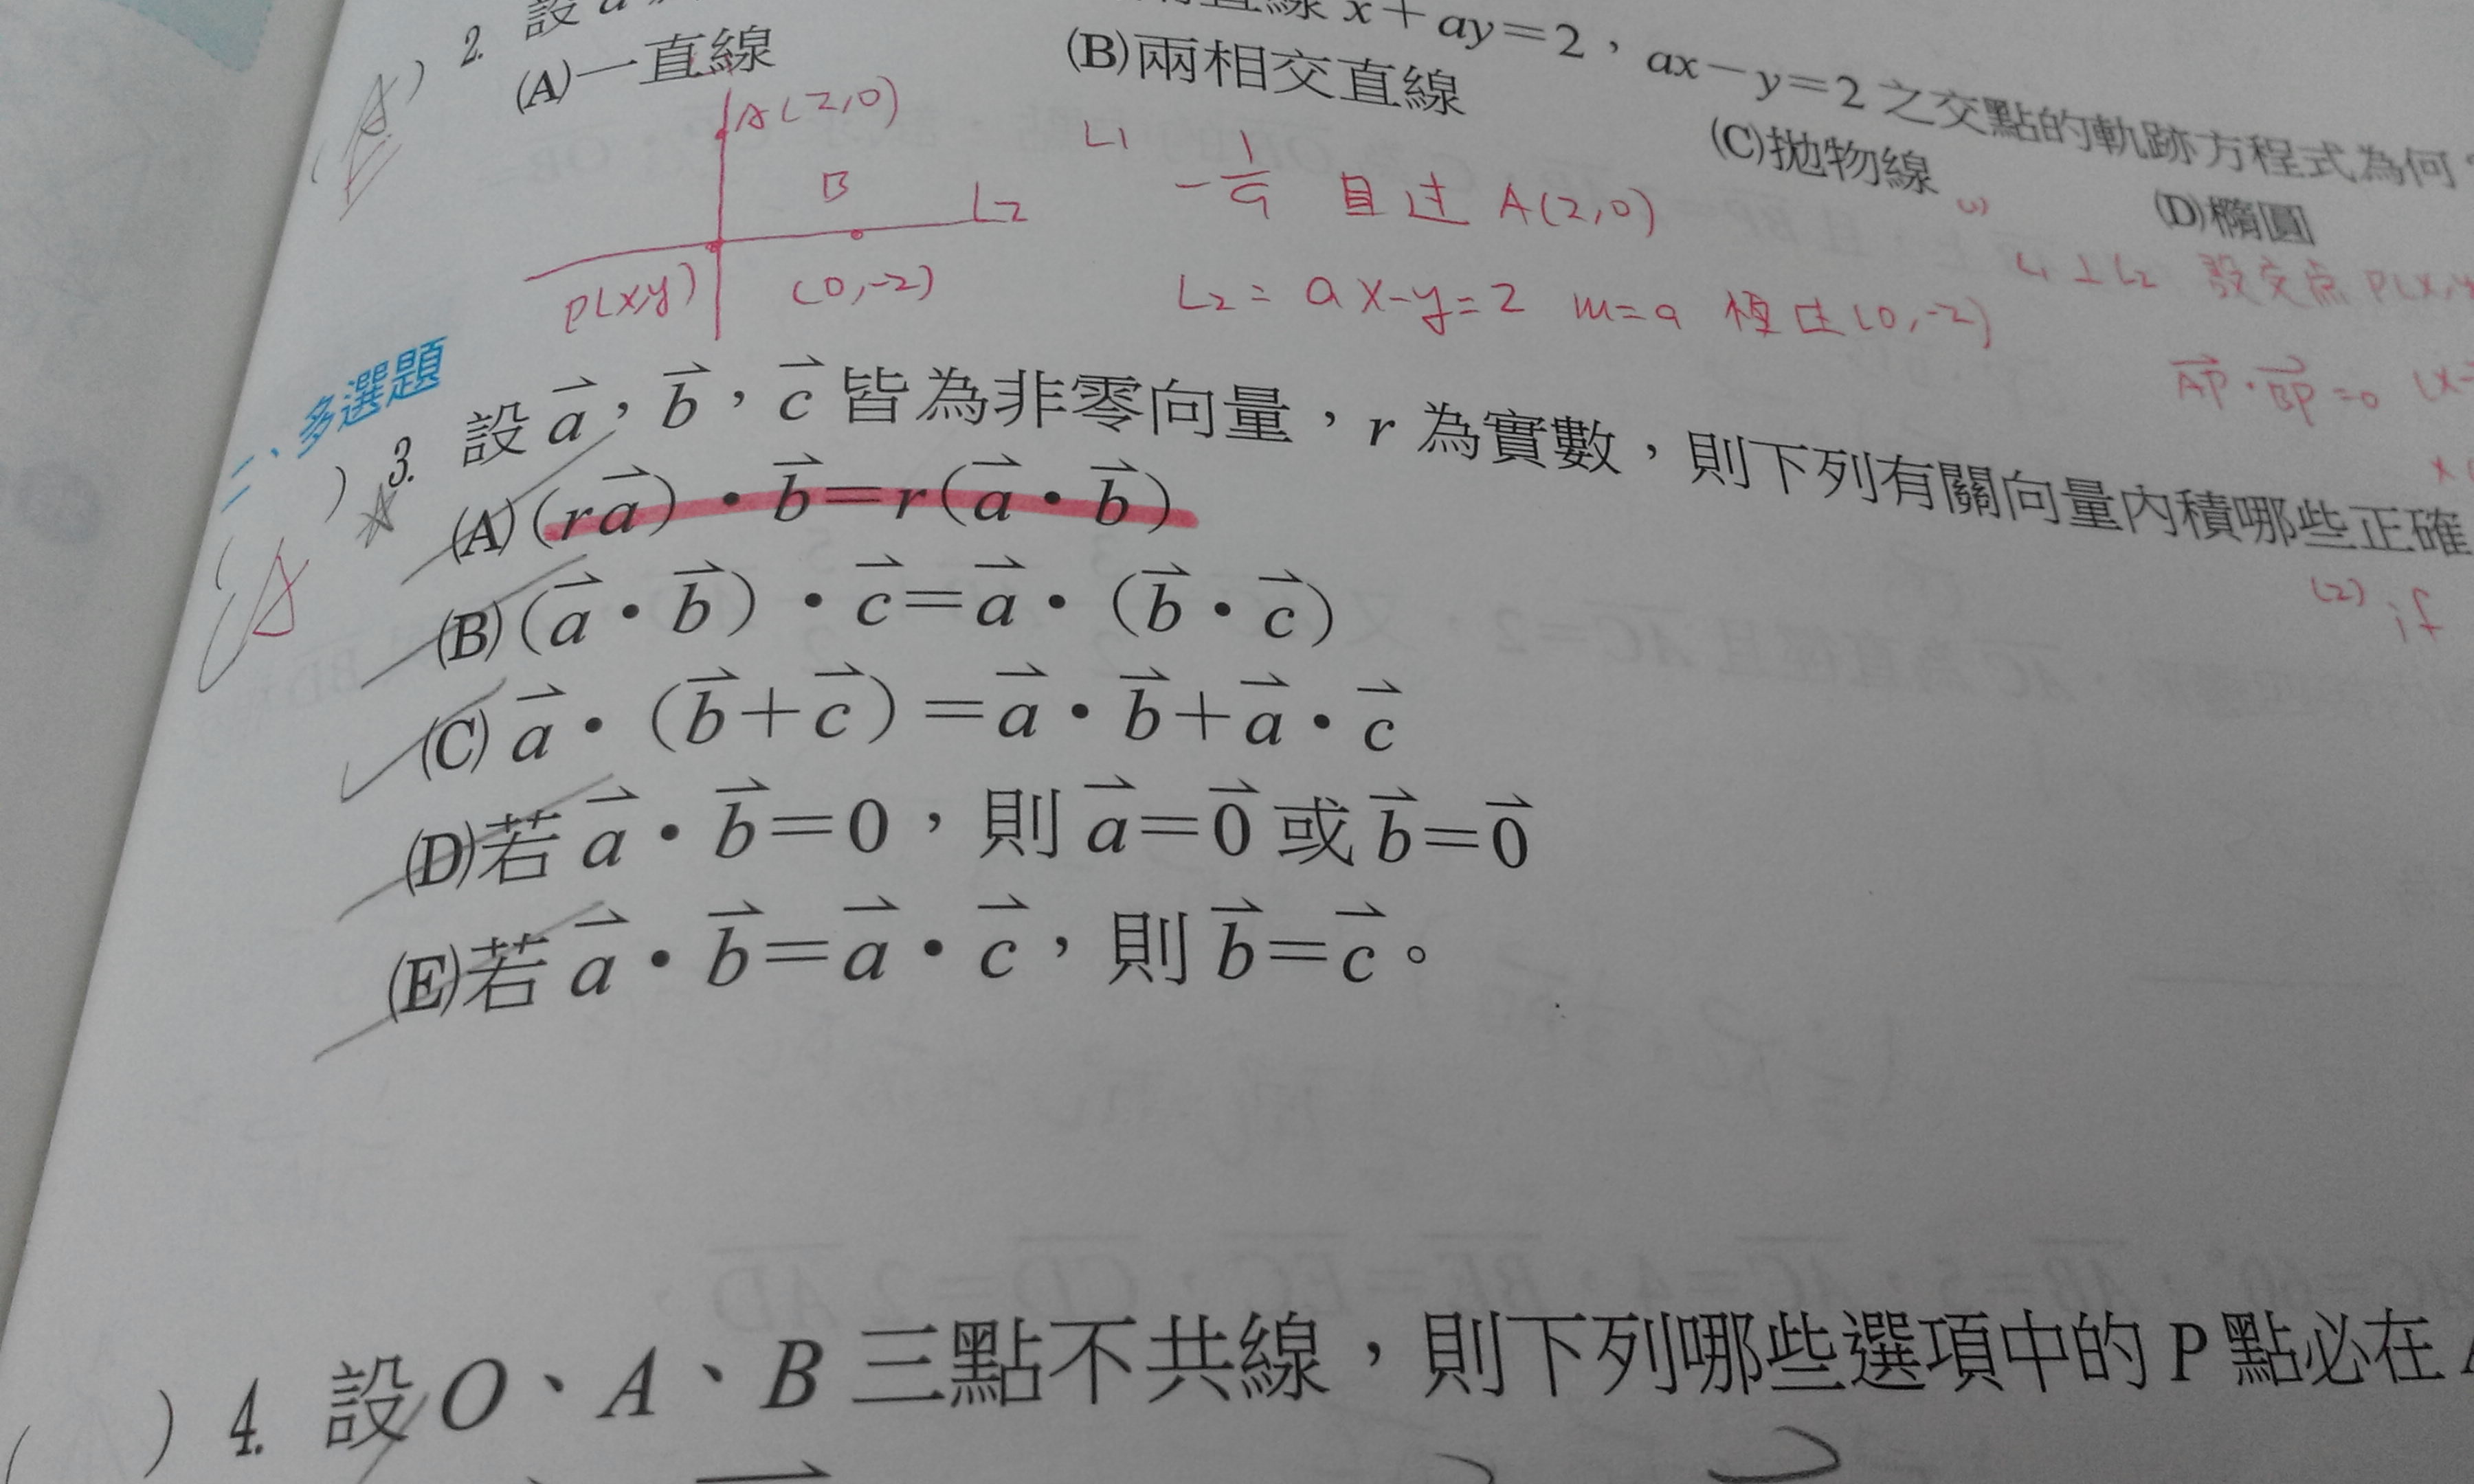 2. 設
直線 x+ay=2,ax-y=2之交點的軌跡方程式為何
(A)一直線 (B)兩相交直線 (C)拋物線 (D)橢圓
A(2,0)
B
L2
P(x,y)
(0,-2)
L1 -1/a 且过 A(2,0)
L2= ax-y=2 m=a 恆过(0,-2)
L1⊥L2 設交点 P(x,y
AP⃗·BP⃗=0 (x-
二、多選題
)3. 設 a⃗,b⃗,c⃗ 皆為非零向量,r 為實數,則下列有關向量內積哪些正確
(A)(ra⃗)•b⃗=r(a⃗•b⃗)
(B)(a⃗•b⃗)•c⃗=a⃗•(b⃗•c⃗)
(2) if
(C)a⃗•(b⃗+c⃗)=a⃗•b⃗+a⃗•c⃗
(D)若 a⃗•b⃗=0,則 a⃗=0⃗ 或 b⃗=0⃗
(E)若 a⃗•b⃗=a⃗•c⃗,則 b⃗=c⃗。
( )4. 設 O、A、B 三點不共線,則下列哪些選項中的 P 點必在